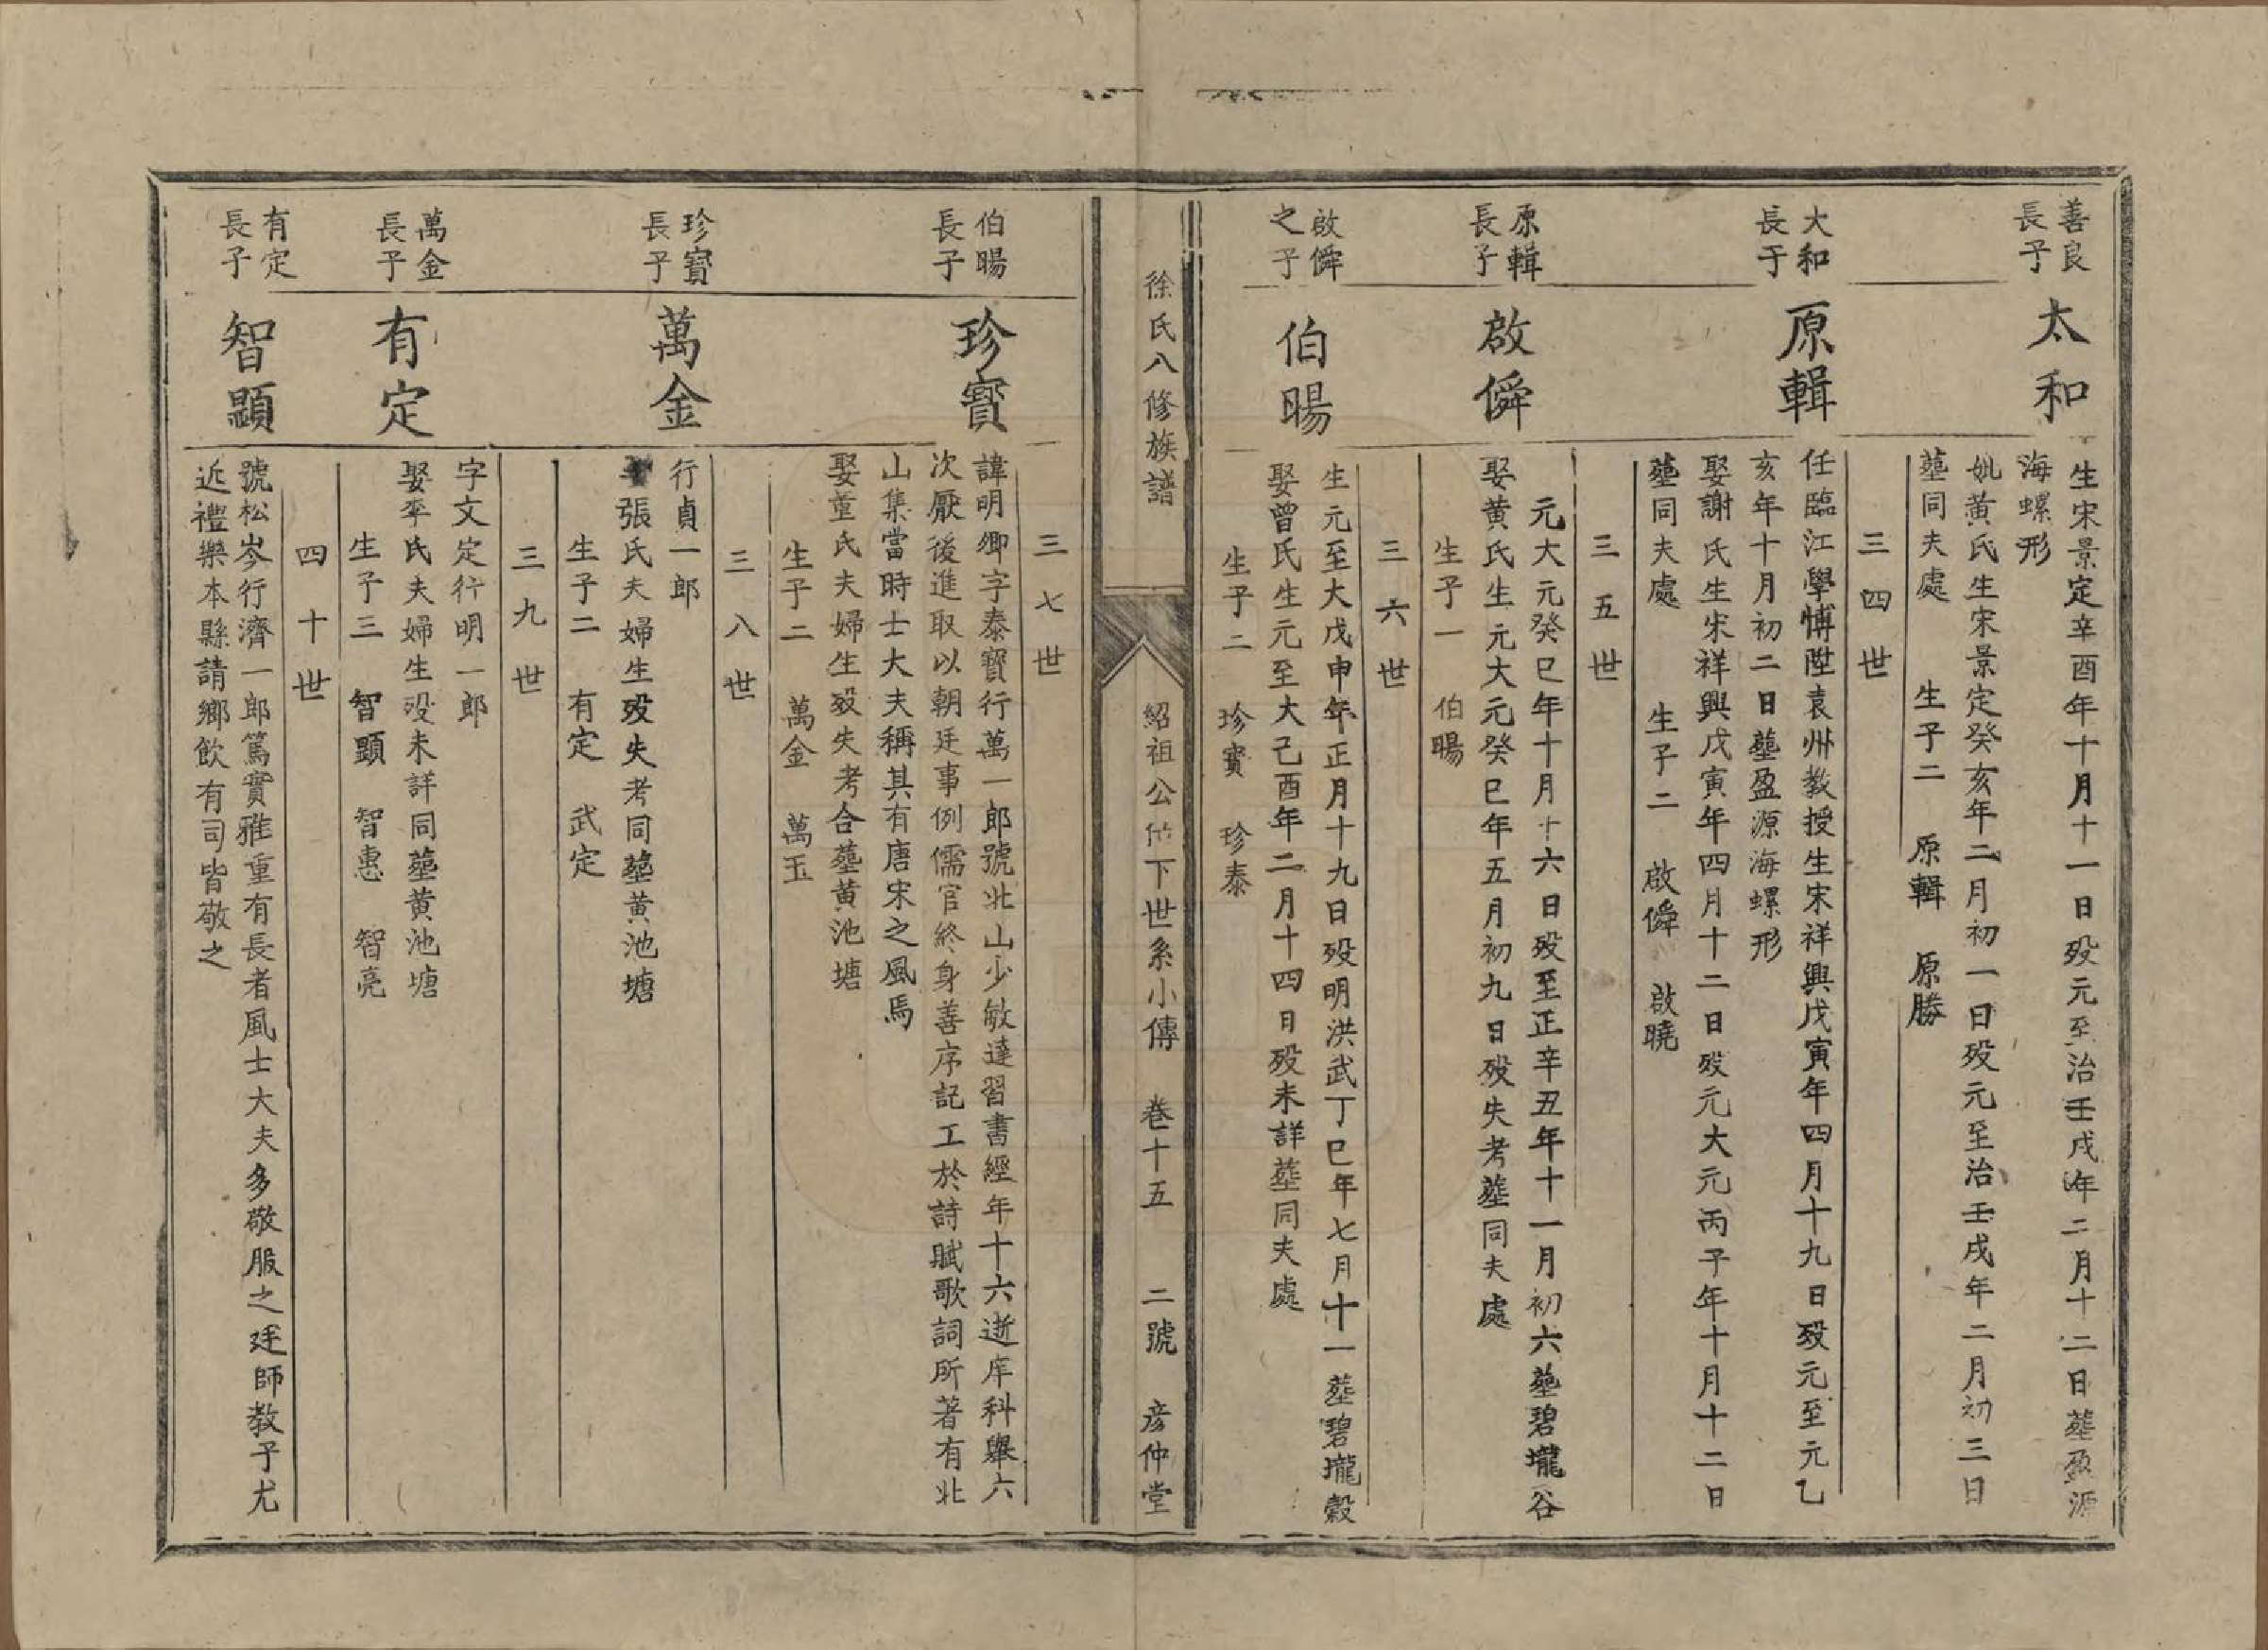 善良
長子
太和
生宋景定辛酉年十月十一日歿元至治壬戌年二月十二日塟盈源
海螺形
妣黄氏生宋景定癸亥年二月初一日歿元至治壬戌年二月初三日
塟同夫處　生子二　原輯　原勝
三四世
大和
長子
原輯
任臨江學博陞袁州教授生宋祥興戊寅年四月十九日歿元至元乙
亥年十月初二日塟盈源海螺形
娶謝氏生宋祥興戊寅年四月十二日歿元大元丙子年十月十二日
塟同夫處　生子二　啟僢　啟曉
三五世
原輯
長子
啟僢
元大元癸巳年十月十六日歿至正辛丑年十一月初六塟碧壠谷
娶黄氏生元大元癸巳年五月初九日歿失考塟同夫處
生子一　伯暘
三六世
啟僢
之子
伯暘
生元至大戊申年正月十九日歿明洪武丁巳年七月十一塟碧壠穀
娶曾氏生元至大己酉年二月十四日歿未詳塟同夫處
生子二　珍寳　珍泰
徐氏八修族譜
紹祖公位下世系小傳　卷十五　二號　彦仲堂
三七世
伯暘
長子
珍寳
諱明卿字泰寳行萬一郎號北山少敏達習書經年十六逝庠科舉六
次厭後進取以朝廷事例儒官終身善序記工於詩賦歌詞所著有北
山集當時士大夫稱其有唐宋之風焉
娶童氏夫婦生歿失考合塟黄池塘
生子二　萬金　萬玉
三八世
珍寳
長子
萬金
行貞一郎
張氏夫婦生歿失考同塟黄池塘
生子二　有定　武定
三九世
萬金
長子
有定
字文定行明一郎
娶辛氏夫婦生歿未詳同塟黄池塘
生子三　智顕　智惠　智亮
四十世
有定
長子
智顕
號松岑行濟一郎篤實雅重有長者風士大夫多敬服之廷師教子尤
近禮樂本縣請鄉飲有司皆敬之